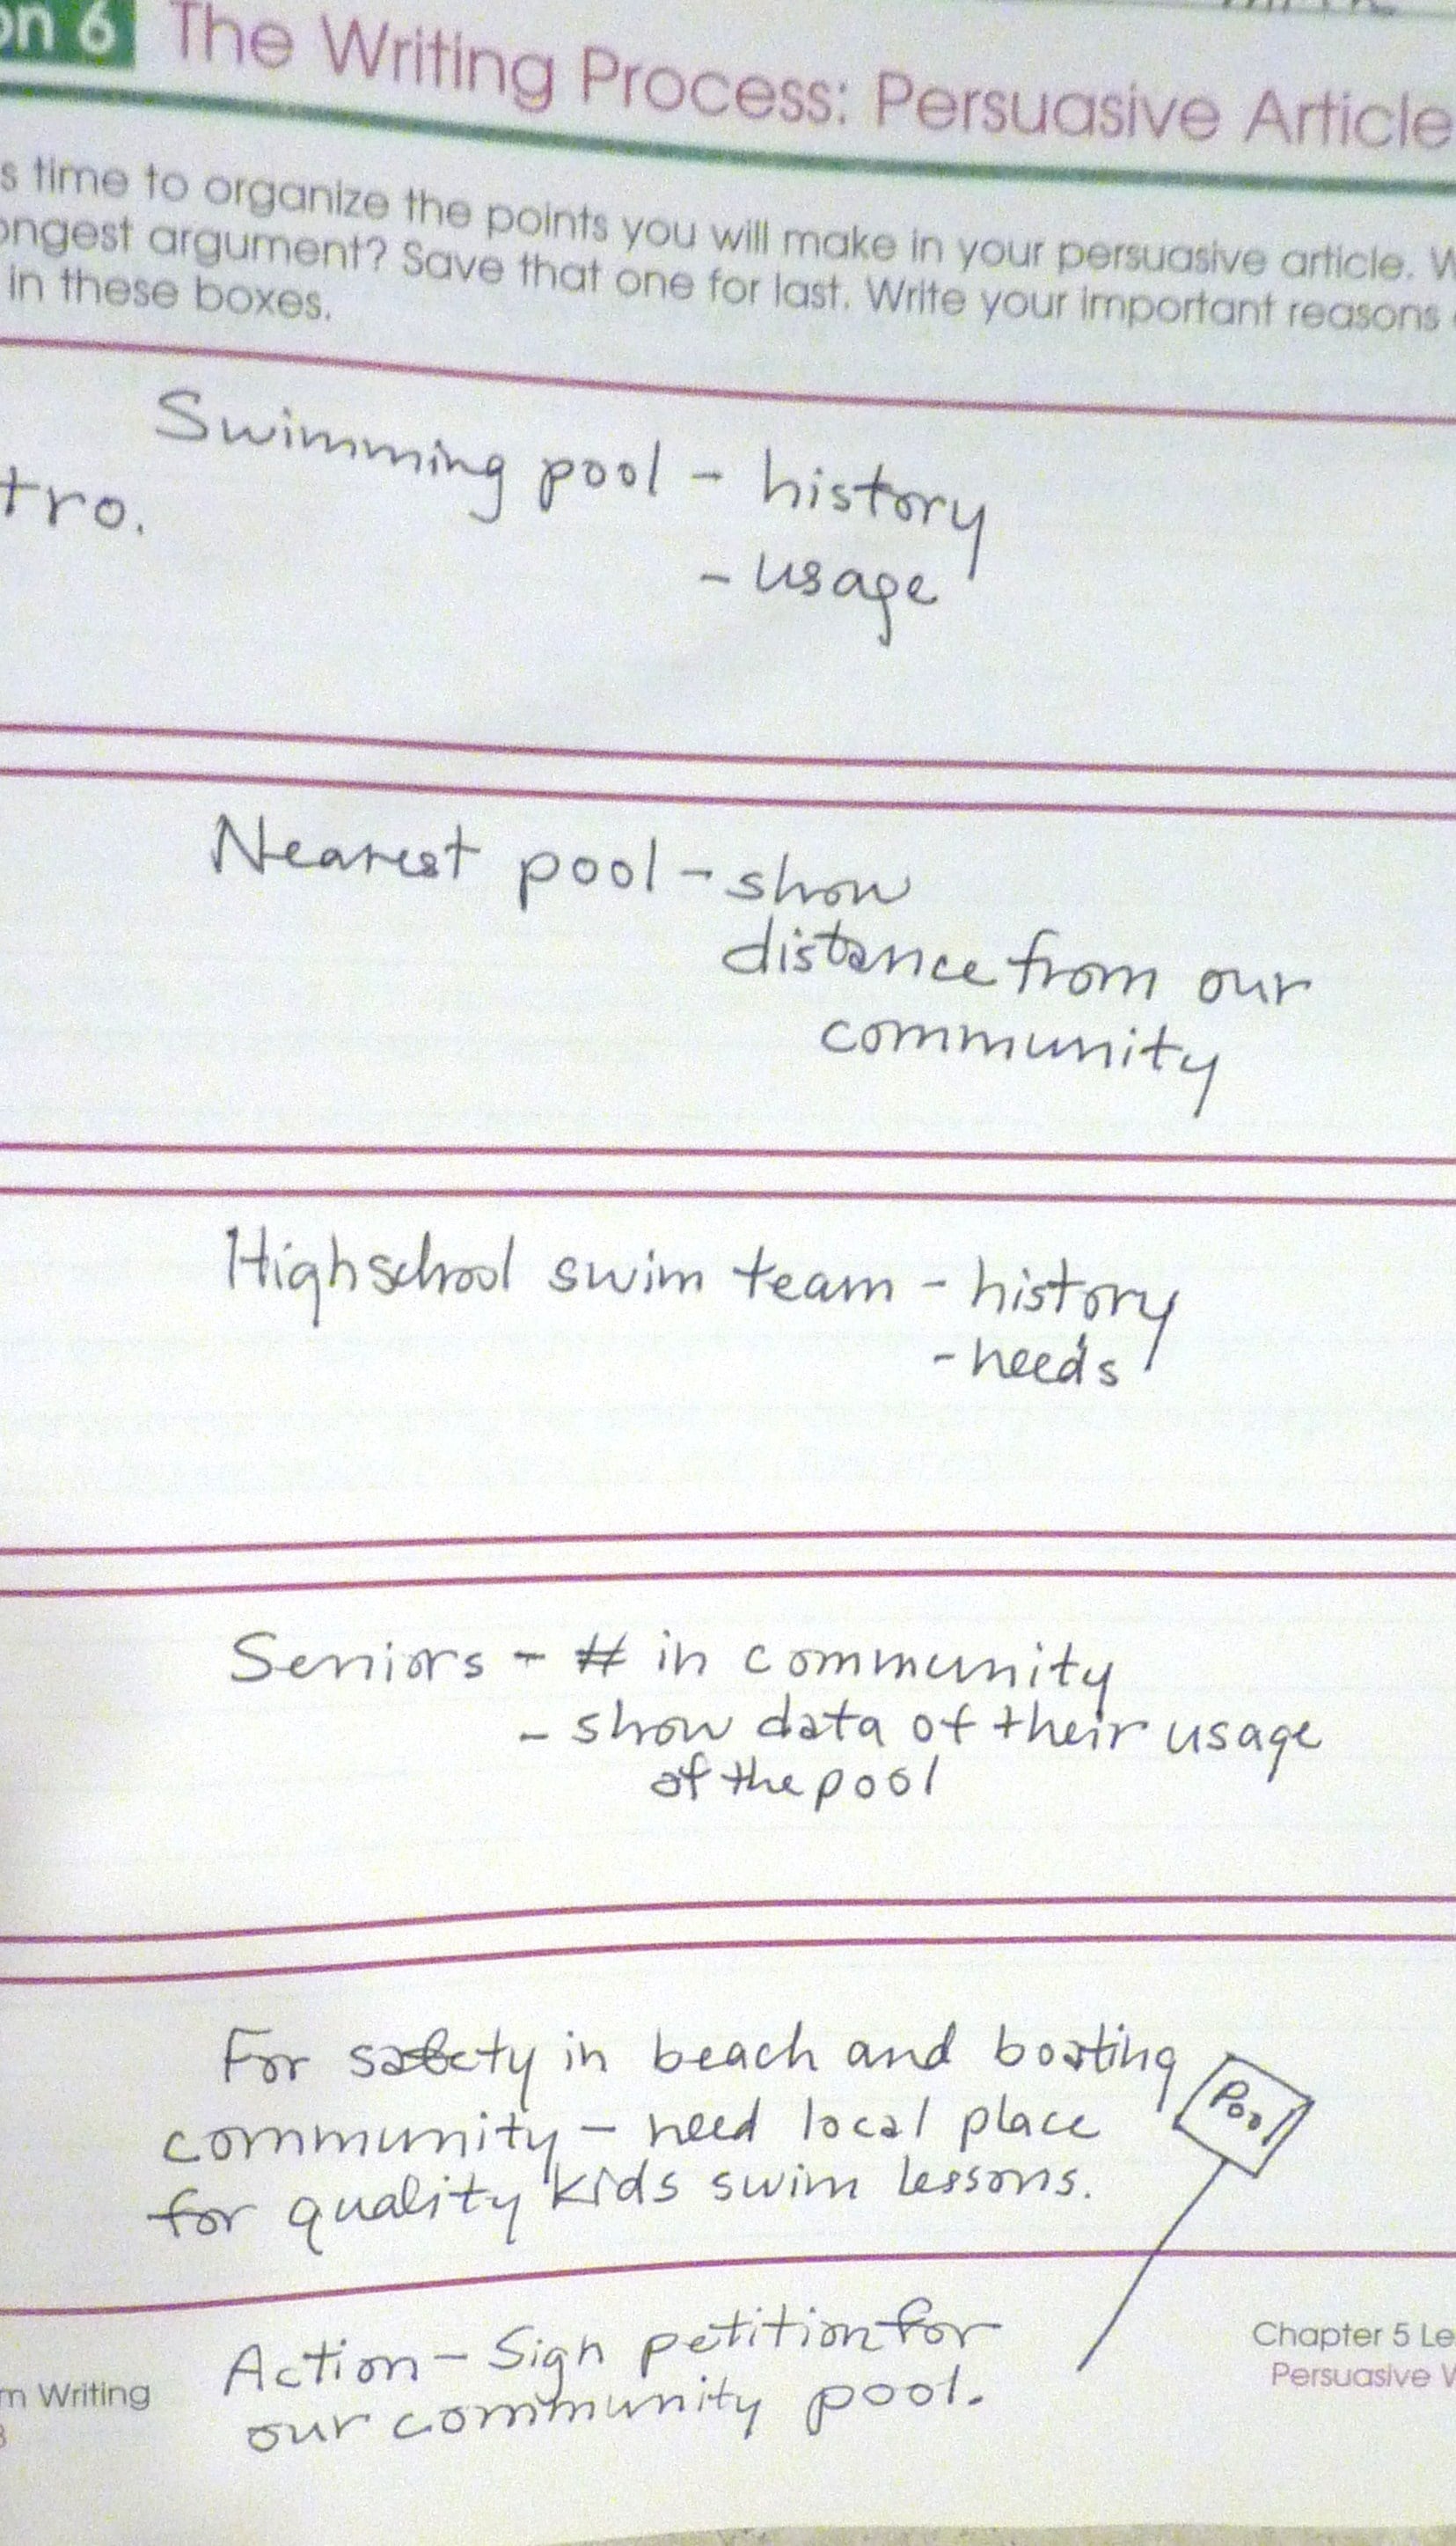 on 6 The Writing Process: Persuasive Article
s time to organize the points you will make in your persuasive article. W
ongest argument? Save that one for last. Write your important reasons
in these boxes.
Swimming pool - history
tro.
- usage
Nearest pool - show
distance from our
community
Highschool swim team - history
- needs
Seniors - # in community
- show data of their usage
of the pool
For safety in beach and boating
community - need local place
for quality kids swim lessons.
Pool
Action - Sign petition for
our community pool.
Chapter 5 Le
Persuasive W
m Writing